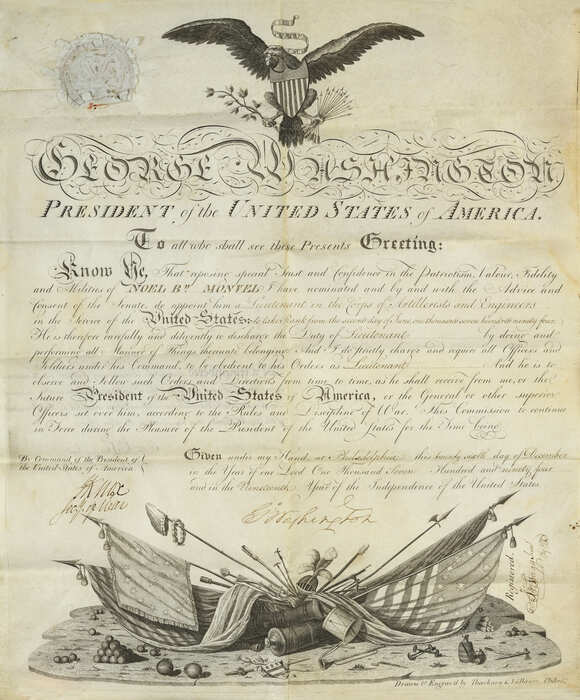 GEORGE WASHINGTON
PRESIDENT of the UNITED STATES of AMERICA.
To all who shall see these Presents Greeting:
Know Ye, That reposing special Trust and Confidence in the Patriotism, Valour, Fidelity
and Abilities of NOEL Bte. MONTEL I have nominated and by and with the Advice and
Consent of the Senate, do appoint him a Lieutenant in the Corps of Artillerists and Engineers
in the Service of the United States: to take Rank from the second day of June, one thousand seven hundred ninety four
He is therefore carefully and diligently to discharge the Duty of Lieutenant by doing and
performing all Manner of Things thereunto belonging. And I do strictly charge and require all Officers and
Soldiers under his Command, to be obedient to his Orders as Lieutenant And he is to
observe and follow such Orders and Directions from time to time, as he shall receive from me, or the
future President of the United States of America, or the General or other superior
Officers set over him, according to the Rules and Discipline of War. This Commission to continue
in Force during the Pleasure of the President of the United States for the Time being.
By Command of the President of
the United States of America
Given under my Hand, at Philadelphia this twenty sixth day of December
in the Year of our Lord One Thousand Seven Hundred and ninety four
and in the Nineteenth Year of the Independence of the United States.
H Knox
Secy of War
G Washington
Registered
Drawn & Engraved by Thackara & Vallance Philad.